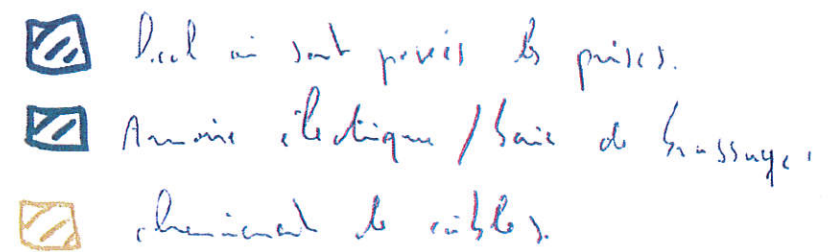 où sont posées les prises.
Armoire électrique / baie de brassage.
cheminement de câbles.